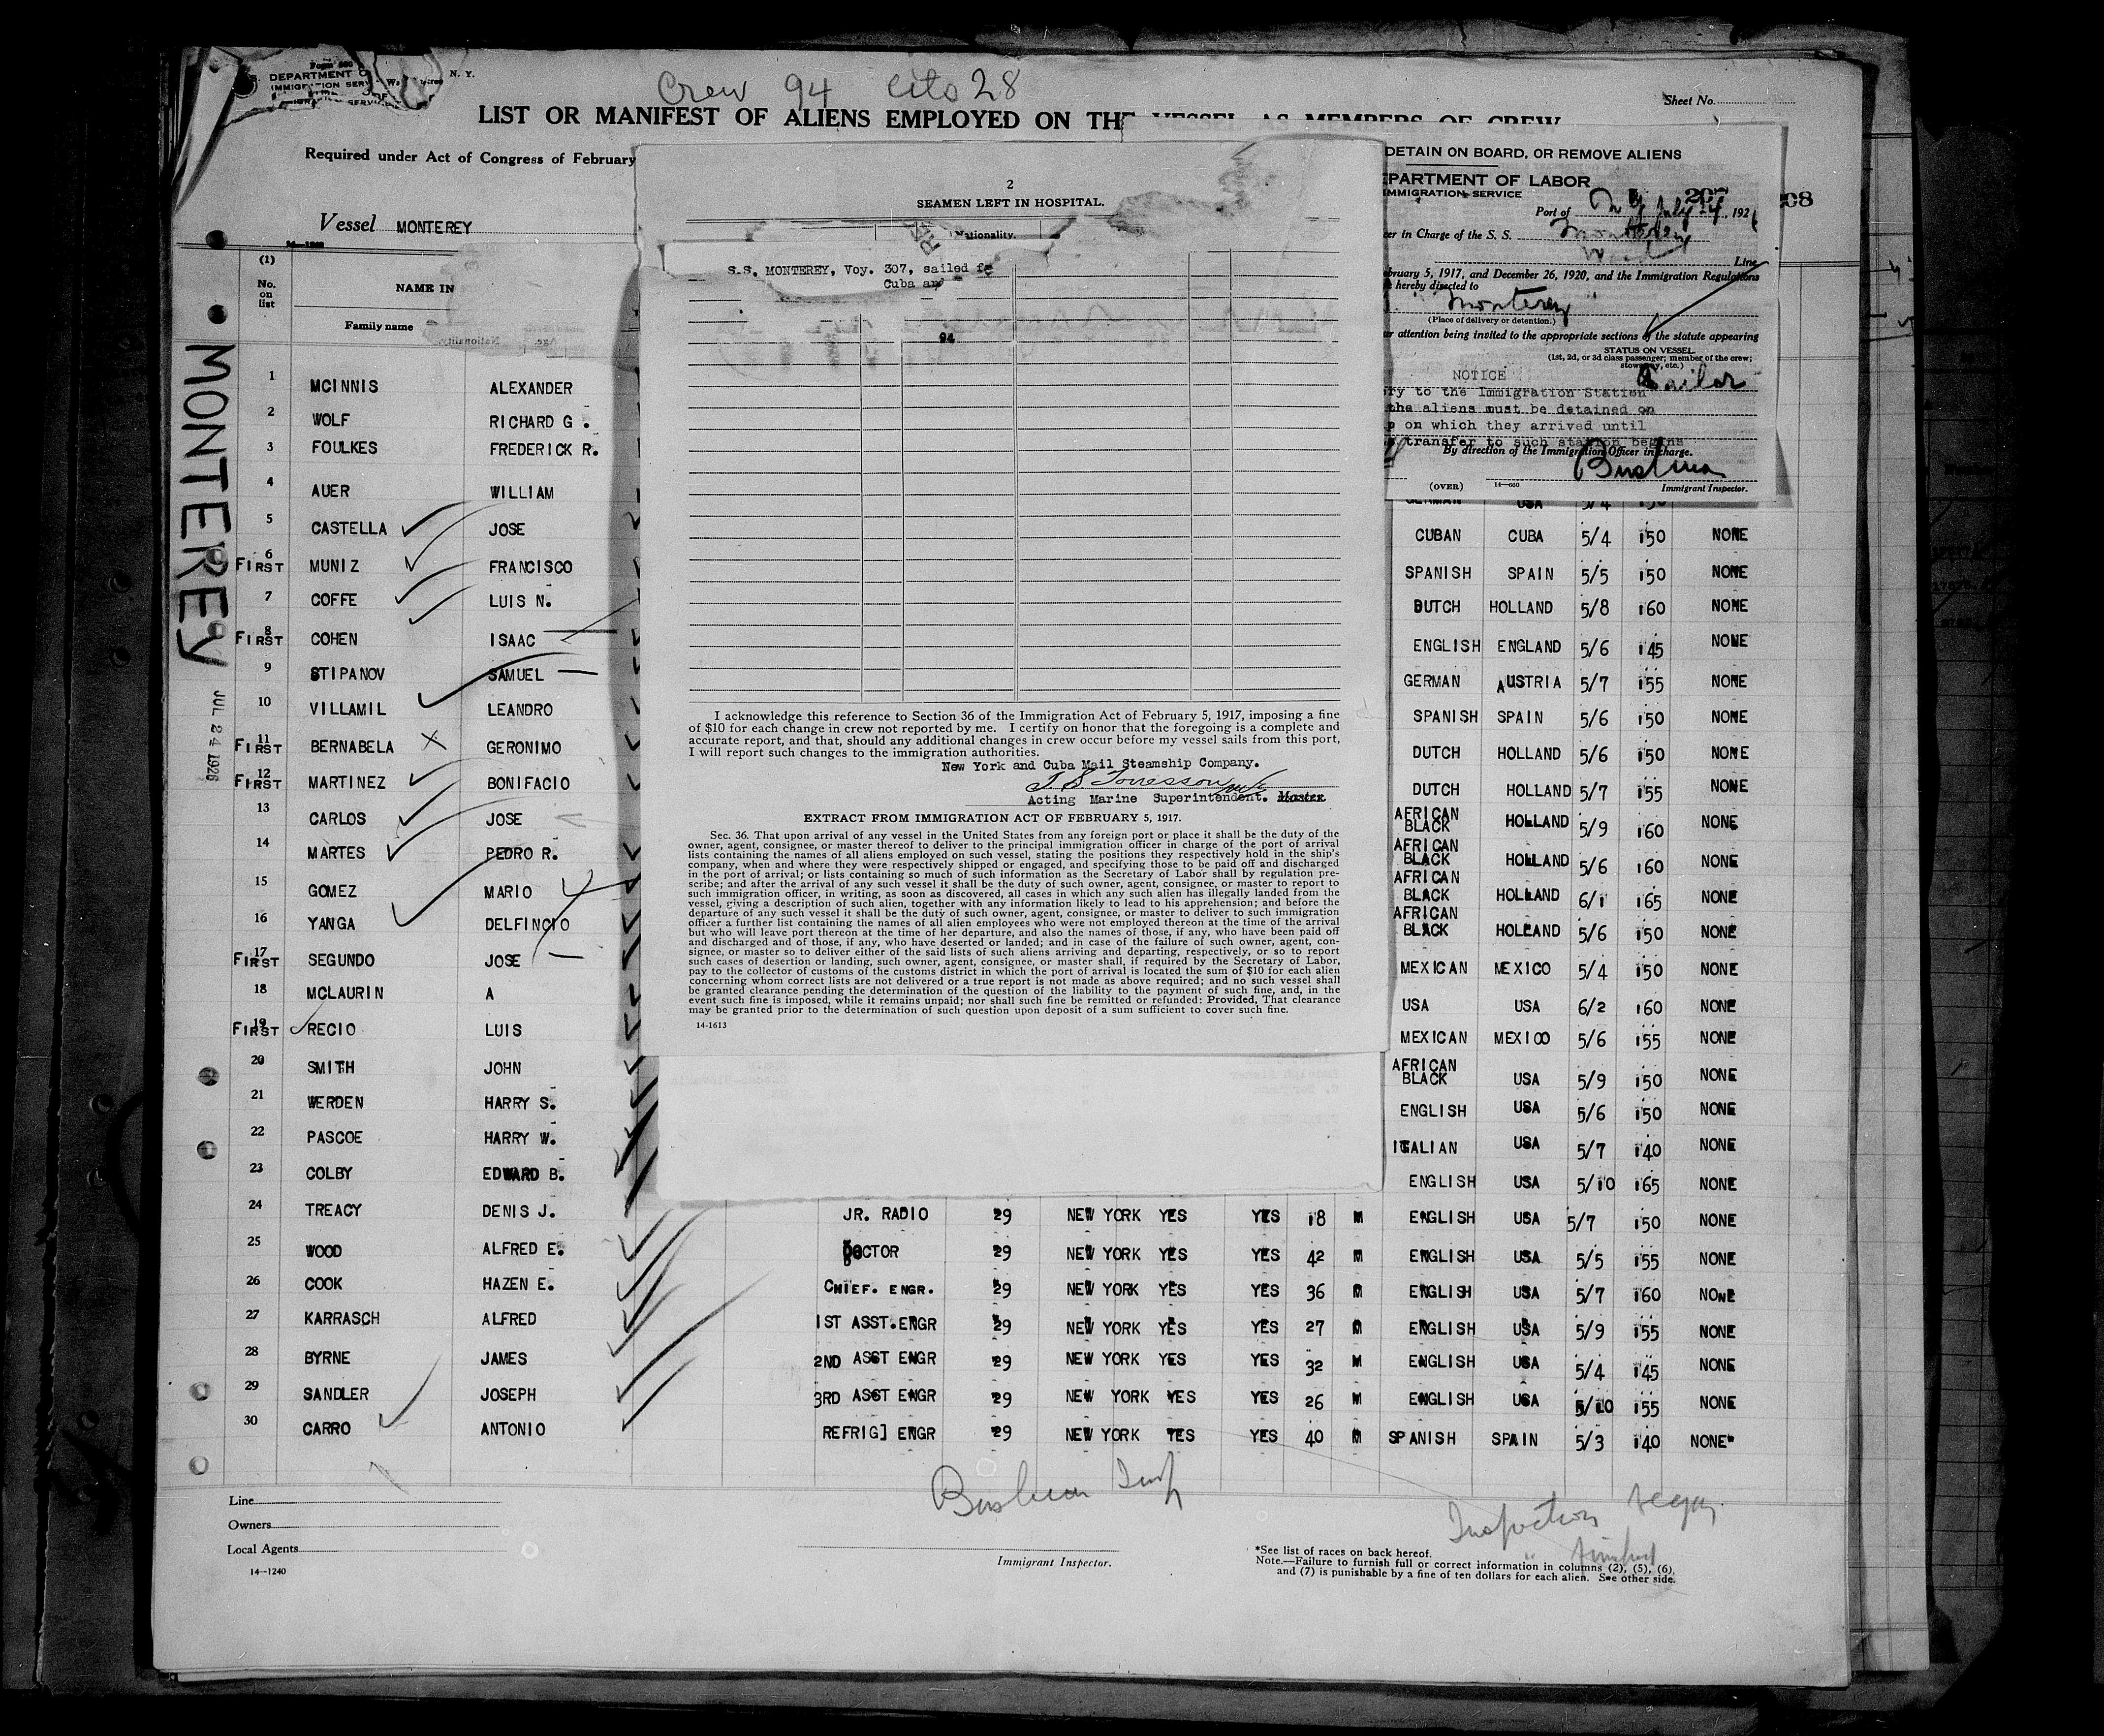 Form 680
DEPARTMENT O
IMMIGRATION SERV
N. Y.
Crew 94 Cits 28
Sheet No.
LIST OR MANIFEST OF ALIENS EMPLOYED ON THE VESSEL AS MEMBERS OF CREW
Required under Act of Congress of February
Vessel MONTEREY
(1)
No. on list
NAME IN
Family name
MONTEREY
JUL 24 1926
1 MCINNIS ALEXANDER
2 WOLF RICHARD G.
3 FOULKES FREDERICK R.
4 AUER WILLIAM
5 CASTELLA JOSE CUBAN CUBA 5/4 150 NONE
6 FIRST MUNIZ FRANCISCO SPANISH SPAIN 5/5 150 NONE
7 COFFE LUIS N. DUTCH HOLLAND 5/8 160 NONE
8 FIRST COHEN ISAAC ENGLISH ENGLAND 5/6 145 NONE
9 STIPANOV SAMUEL GERMAN AUSTRIA 5/7 155 NONE
10 VILLAMIL LEANDRO SPANISH SPAIN 5/6 150 NONE
11 FIRST BERNABELA GERONIMO DUTCH HOLLAND 5/6 150 NONE
12 FIRST MARTINEZ BONIFACIO DUTCH HOLLAND 5/7 155 NONE
13 CARLOS JOSE AFRICAN BLACK HOLLAND 5/9 160 NONE
14 MARTES PEDRO R. AFRICAN BLACK HOLLAND 5/6 160 NONE
15 GOMEZ MARIO AFRICAN BLACK HOLLAND 6/1 165 NONE
16 YANGA DELFINCIO AFRICAN BLACK HOLLAND 5/6 150 NONE
17 FIRST SEGUNDO JOSE MEXICAN MEXICO 5/4 150 NONE
18 MCLAURIN A USA USA 6/2 160 NONE
19 FIRST RECIO LUIS MEXICAN MEXICO 5/6 155 NONE
20 SMITH JOHN AFRICAN BLACK USA 5/9 150 NONE
21 WERDEN HARRY S. ENGLISH USA 5/6 150 NONE
22 PASCOE HARRY W. ITALIAN USA 5/7 140 NONE
23 COLBY EDWARD B. ENGLISH USA 5/10 165 NONE
24 TREACY DENIS J. JR. RADIO 29 NEW YORK YES YES 18 M ENGLISH USA 5/7 150 NONE
25 WOOD ALFRED E. DOCTOR 29 NEW YORK YES YES 42 M ENGLISH USA 5/5 155 NONE
26 COOK HAZEN E. CHIEF. ENGR. 29 NEW YORK YES YES 36 M ENGLISH USA 5/7 160 NONE
27 KARRASCH ALFRED 1ST ASST.ENGR 29 NEW YORK YES YES 27 M ENGLISH USA 5/9 155 NONE
28 BYRNE JAMES 2ND ASST ENGR 29 NEW YORK YES YES 32 M ENGLISH USA 5/4 145 NONE
29 SANDLER JOSEPH 3RD ASST ENGR 29 NEW YORK YES YES 26 M ENGLISH USA 5/10 155 NONE
30 CARRO ANTONIO REFRIG] ENGR 29 NEW YORK YES YES 40 M SPANISH SPAIN 5/3 140 NONE
Line
Owners
Local Agents
14—1240
Bushman Insp
Immigrant Inspector.
Inspection began
" finished
*See list of races on back hereof.
Note.—Failure to furnish full or correct information in columns (2), (5), (6),
and (7) is punishable by a fine of ten dollars for each alien. See other side.
2
SEAMEN LEFT IN HOSPITAL.
Nationality.
S.S. MONTEREY, Voy. 307, sailed
Cuba
94
I acknowledge this reference to Section 36 of the Immigration Act of February 5, 1917, imposing a fine
of $10 for each change in crew not reported by me. I certify on honor that the foregoing is a complete and
accurate report, and that, should any additional changes in crew occur before my vessel sails from this port,
I will report such changes to the immigration authorities.
New York and Cuba Mail Steamship Company.
Acting Marine Superintendent. Master
EXTRACT FROM IMMIGRATION ACT OF FEBRUARY 5, 1917.
Sec. 36. That upon arrival of any vessel in the United States from any foreign port or place it shall be the duty of the
owner, agent, consignee, or master thereof to deliver to the principal immigration officer in charge of the port of arrival
lists containing the names of all aliens employed on such vessel, stating the positions they respectively hold in the ship's
company, when and where they were respectively shipped or engaged, and specifying those to be paid off and discharged
in the port of arrival; or lists containing so much of such information as the Secretary of Labor shall by regulation pre-
scribe; and after the arrival of any such vessel it shall be the duty of such owner, agent, consignee, or master to report to
such immigration officer, in writing, as soon as discovered, all cases in which any such alien has illegally landed from the
vessel, giving a description of such alien, together with any information likely to lead to his apprehension; and before the
departure of any such vessel it shall be the duty of such owner, agent, consignee, or master to deliver to such immigration
officer a further list containing the names of all alien employees who were not employed thereon at the time of the arrival
but who will leave port thereon at the time of her departure, and also the names of those, if any, who have been paid off
and discharged and of those, if any, who have deserted or landed; and in case of the failure of such owner, agent, con-
signee, or master so to deliver either of the said lists of such aliens arriving and departing, respectively, or so to report
such cases of desertion or landing, such owner, agent, consignee, or master shall, if required by the Secretary of Labor,
pay to the collector of customs of the customs district in which the port of arrival is located the sum of $10 for each alien
concerning whom correct lists are not delivered or a true report is not made as above required; and no such vessel shall
be granted clearance pending the determination of the question of the liability to the payment of such fine, and, in the
event such fine is imposed, while it remains unpaid; nor shall such fine be remitted or refunded: Provided, That clearance
may be granted prior to the determination of such question upon deposit of a sum sufficient to cover such fine.
14-1613
DETAIN ON BOARD, OR REMOVE ALIENS
EPARTMENT OF LABOR
IMMIGRATION SERVICE
Port of N Y July 24, 1926
er in Charge of the S. S. Monterey
Ward Line
bruary 5, 1917, and December 26, 1920, and the Immigration Regulations
hereby directed to
"Monterey"
(Place of delivery or detention.)
ur attention being invited to the appropriate sections of the statute appearing
STATUS ON VESSEL
(1st, 2d, or 3d class passenger; member of the crew;
stowaway, etc.)
NOTICE Sailor
ry to the Immigration Station
the aliens must be detained on
p on which they arrived until
transfer to such station begins
By direction of the Immigration Officer in charge.
Bushman
(OVER) 14—680 Immigrant Inspector.